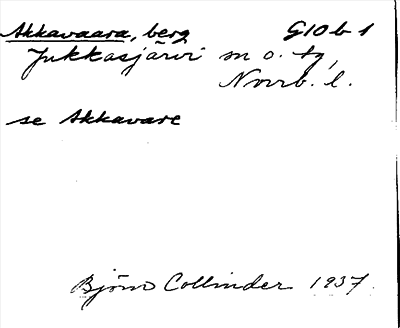 Akkavaara, berg G10b1
Jukkasjärvi sn o. tg,
Norrb. l.
se Akkavare
Björn Collinder 1937.